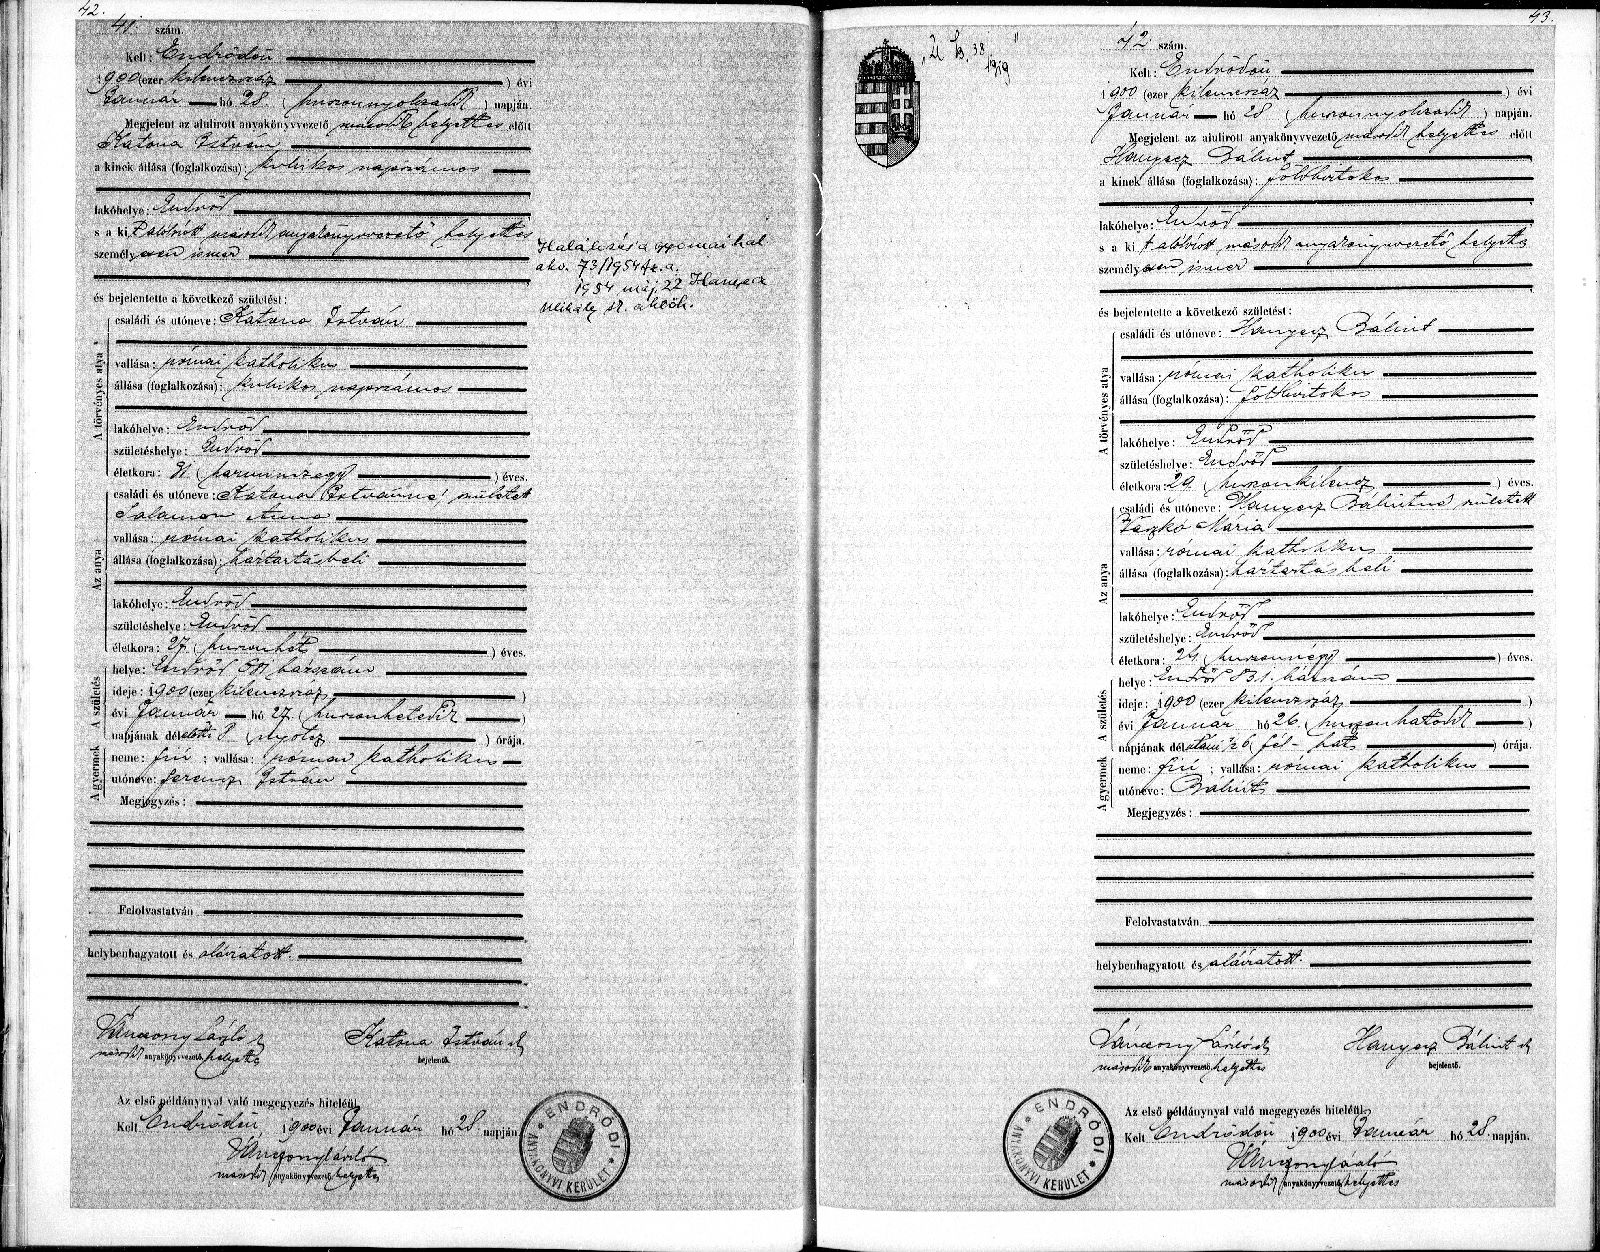 42.
41. szám.
Kelt: Endrődön
1900 (ezer kilenczszáz ) évi
Január hó 28. ( huszonnyolczadik ) napján.
Megjelent az alulirott anyakönyvvezető második helyettes előtt
Katona István
a kinek állása (foglalkozása): kubikos napszámos
lakóhelye: Endrőd
s a kit alólírott második anyakönyvvezető helyettes
személyesen ismer
és bejelentette a következő születést:
A törvényes atya
családi és utóneve: Katona István
vallása: római katholikus
állása (foglalkozása): kubikos napszámos
lakóhelye: Endrőd
születéshelye: Endrőd
életkora: 31 ( harminczegy ) éves.
Az anya
családi és utóneve: Katona Istvánné, született
Salamon Anna
vallása: római katholikus
állása (foglalkozása): háztartásbeli
lakóhelye: Endrőd
születéshelye: Endrőd
életkora: 27. ( huszonhét ) éves.
A születés
helye: Endrőd házszám
ideje: 1900 (ezer kilenczszáz )
évi Január hó 27. ( huszonhetedik )
napjának délelőtti 8 ( nyolcz ) órája.
A gyermek
neme: fiú ; vallása: római katholikus
utóneve: Ferencz István
Megjegyzés:
Felolvastatván
helybenhagyatott és aláiratott.
Vánczony László
második anyakönyvvezető helyettes
Katona István
bejelentő.
Az első példánynyal való megegyezés hiteléül
Kelt Endrődön 1900 évi Január hó 28. napján.
Vánczony László
második anyakönyvvezető helyettes
ENDRŐDI ANYAKÖNYVI KERÜLET
Halálozás a gyomai hal
akv. 73/1954 f.sz.a.
1954 máj. 22 Hanyecz
Mihály sk. akvőh.
43.
42 szám.
Kelt: Endrődön
1900 (ezer kilenczszáz ) évi
Január hó 28 ( huszonnyolczadik ) napján.
Megjelent az alulirott anyakönyvvezető második helyettes előtt
Hanyecz Bálint
a kinek állása (foglalkozása): földbirtokos
lakóhelye: Endrőd
s a kit alólírott második anyakönyvvezető helyettes
személyesen ismer
és bejelentette a következő születést:
A törvényes atya
családi és utóneve: Hanyecz Bálint
vallása: római katholikus
állása (foglalkozása): földbirtokos
lakóhelye: Endrőd
születéshelye: Endrőd
életkora: 29 ( huszonkilencz ) éves.
Az anya
családi és utóneve: Hanyecz Bálintné született
Vaszkó Mária
vallása: római katholikus
állása (foglalkozása): háztartásbeli
lakóhelye: Endrőd
születéshelye: Endrőd
életkora: 24 ( huszonnégy ) éves.
A születés
helye: Endrőd 831. házszám
ideje: 1900 (ezer kilenczszáz )
évi Január hó 26. ( huszonhatodik )
napjának délutáni ½6 ( fél-hat ) órája.
A gyermek
neme: fiú ; vallása: római katholikus
utóneve: Bálint
Megjegyzés:
Felolvastatván
helybenhagyatott és aláiratott.
Vánczony László
második anyakönyvvezető helyettes
Hanyecz Bálint
bejelentő.
Az első példánynyal való megegyezés hiteléül
Kelt Endrődön 1900 évi Január hó 28. napján.
Vánczony László
második anyakönyvvezető helyettes
ENDRŐDI ANYAKÖNYVI KERÜLET